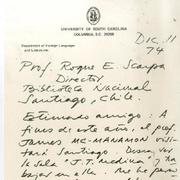 UNIVERSITY OF SOUTH CAROLINA
COLUMBIA, S.C. 29208
Department of Foreign Languages
and Literatures
Dic. 11
74
Prof. Roque E. Scarpa
Director
Biblioteca Nacional
Santiago, Chile.
Estimado amigo: A
fines de este año, el prof.
James McManamon visi-
tará Santiago. Desea ver
la Sala "J.T. Medina" y tra
bajar en ella. Me he permi